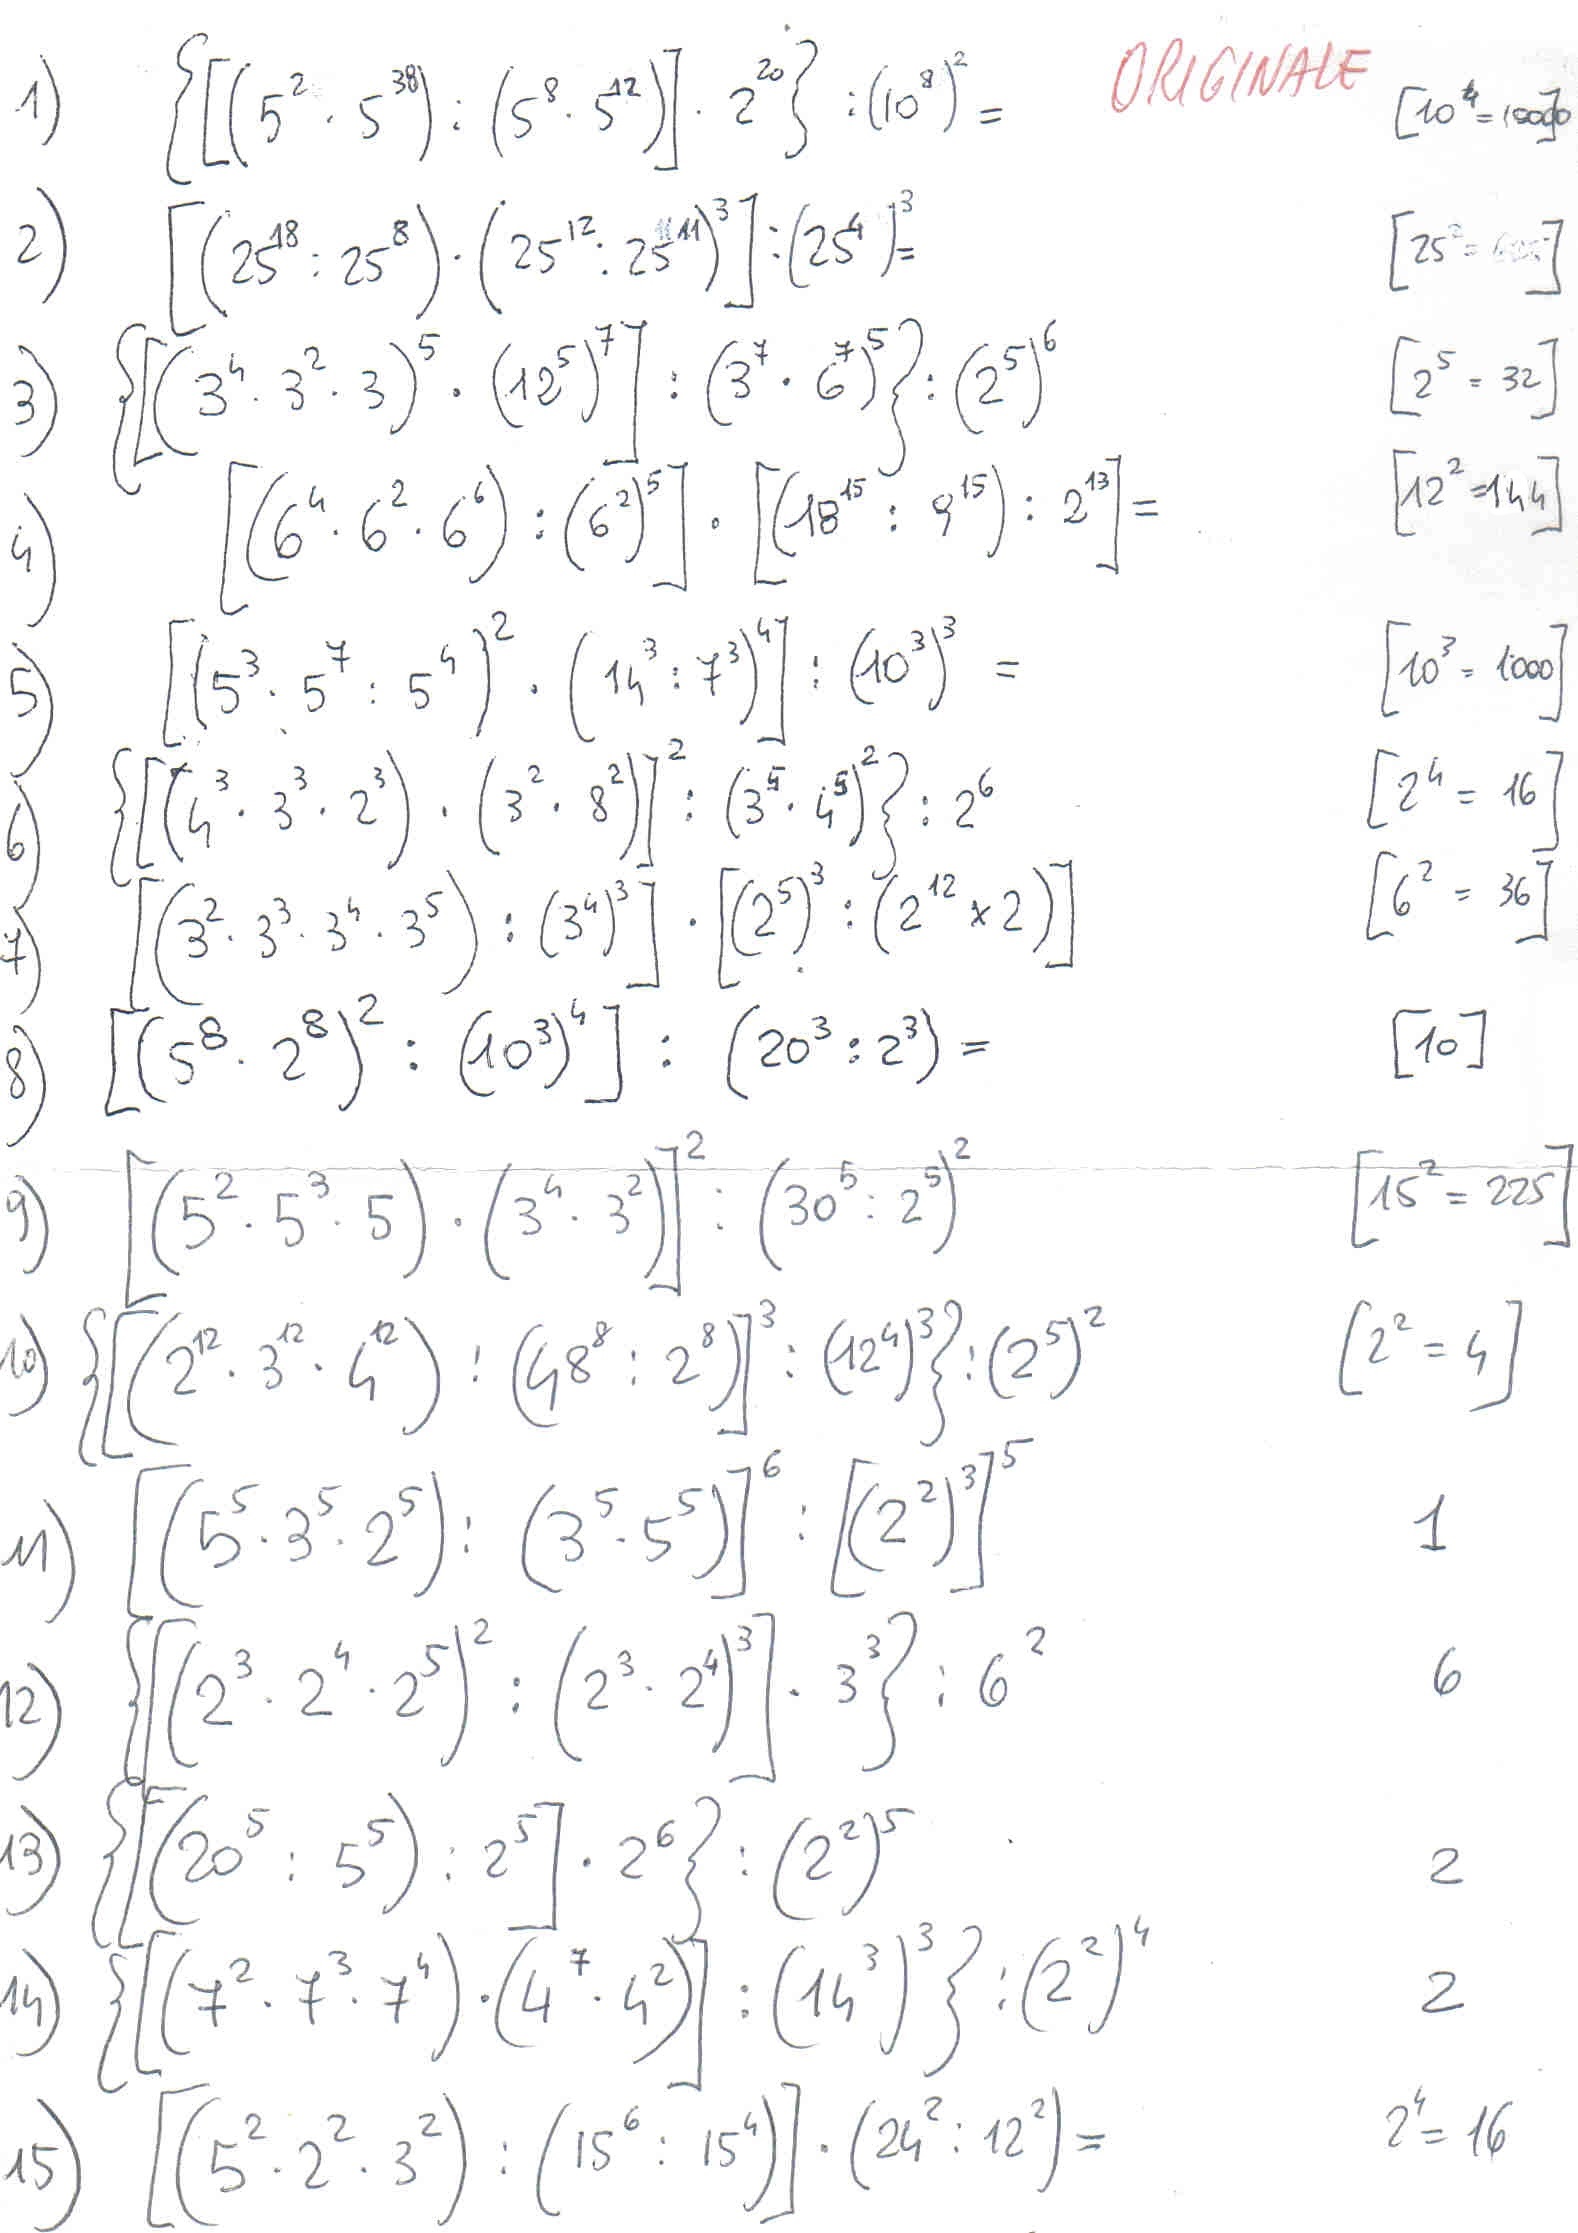 ORIGINALE
1) {[(5² · 5³⁸) : (5⁸ · 5¹²)] · 2²⁰} : (10⁸)² = [10⁴ = 10000]
2) [(25¹⁸ : 25⁸) · (25¹² : 25¹¹)³] : (25⁴)³ = [25² = 625]
3) {[(3⁴ · 3² · 3)⁵ · (12⁵)⁷] : (3⁷ · 6⁷)⁵} : (2⁵)⁶ [2⁵ = 32]
4) [(6⁴ · 6² · 6⁶) : (6²)⁵] · [(18¹⁵ : 9¹⁵) : 2¹³] = [12² = 144]
5) [(5³ · 5⁷ : 5⁴)² · (14³ : 7³)⁴] : (10³)³ = [10³ = 1000]
6) {[(4³ · 3³ · 2³) · (3² · 8²)]² : (3⁵ · 4⁵)²} : 2⁶ [2⁴ = 16]
7) [(3² · 3³ · 3⁴ · 3⁵) : (3⁴)³] · [(2⁵)³ : (2¹² x 2)] [6² = 36]
8) [(5⁸ · 2⁸)² : (10³)⁴] : (20³ : 2³) = [10]
9) [(5² · 5³ · 5) · (3⁴ · 3²)]² : (30⁵ : 2⁵)² [15² = 225]
10) {[(2¹² · 3¹² · 4¹²) : (48⁸ : 2⁸)]³ : (12⁴)³} : (2⁵)² [2² = 4]
11) [(5⁵ · 3⁵ · 2⁵) : (3⁵ · 5⁵)]⁶ : [(2²)³]⁵ 1
12) {[(2³ · 2⁴ · 2⁵)² : (2³ · 2⁴)³] · 3³} : 6² 6
13) {[(20⁵ : 5⁵) : 2⁵] · 2⁶} : (2²)⁵ 2
14) {[(7² · 7³ · 7⁴) · (4⁷ · 4²)] : (14³)³} : (2²)⁴ 2
15) [(5² · 2² · 3²) : (15⁶ : 15⁴)] · (24² : 12²) = 2⁴ = 16